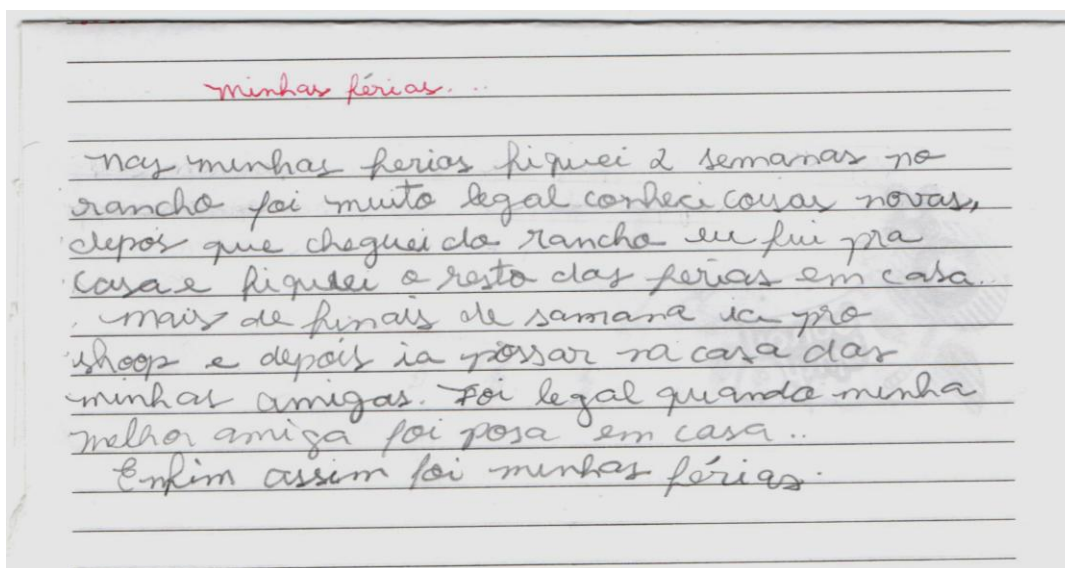 minhas férias...
nas minhas ferias fiquei 2 semanas no
rancho foi muito legal conheci cousas novas,
depois que cheguei do rancho eu fui pra
casa e fiquei o resto das ferias em casa.
mais de finais de samana ia pro
shoop e depois ia possar na casa das
minhas amigas. Foi legal quando minha
melhor amiga foi posa em casa..
Enfim assim foi minhas férias.